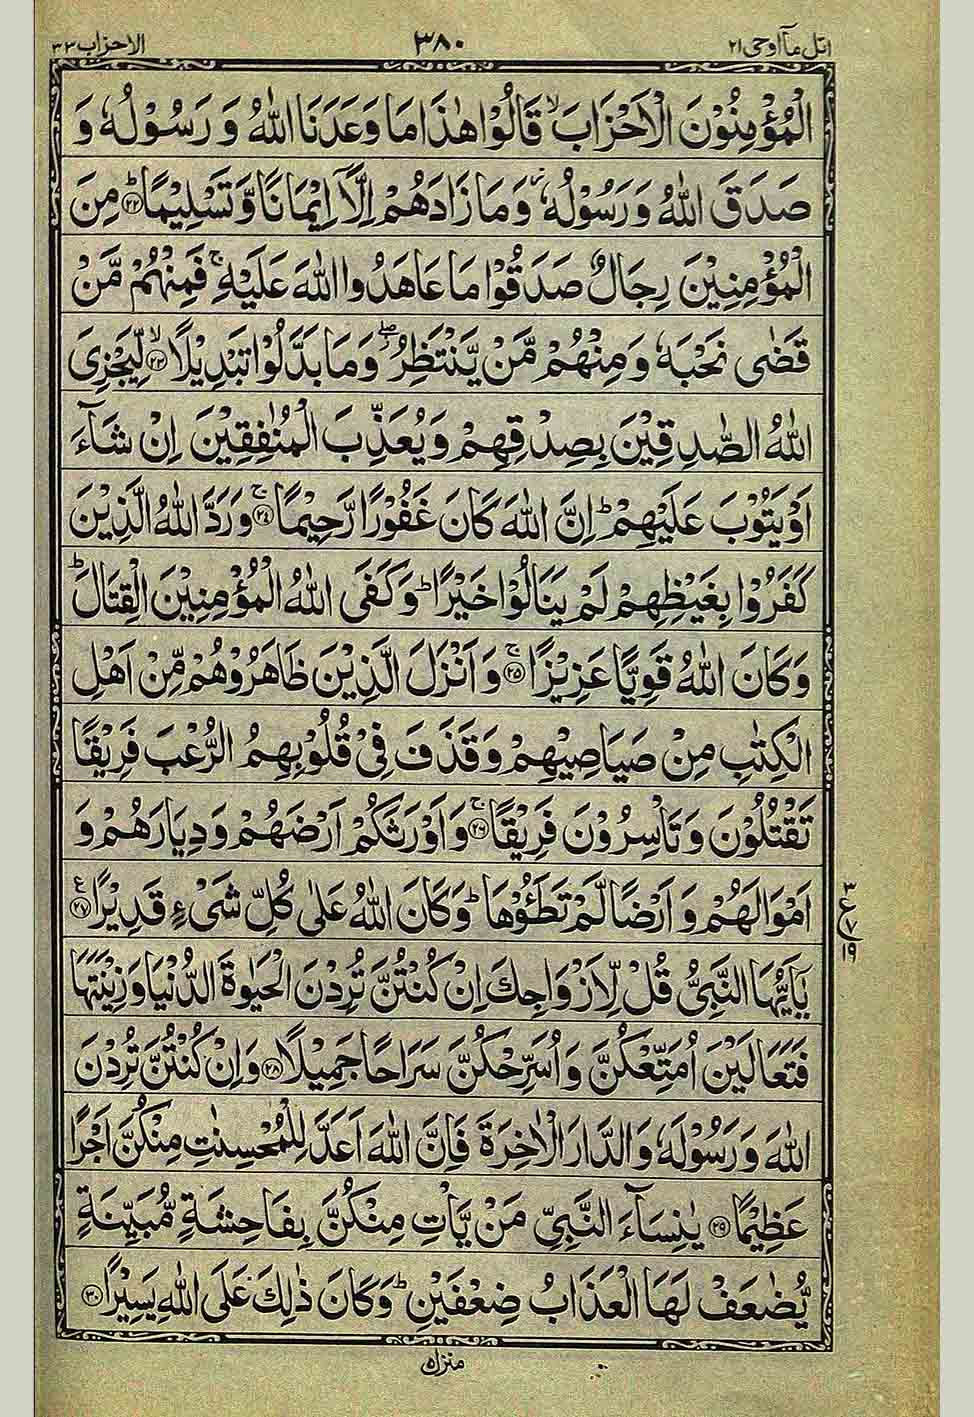 اتل مآ اوحی ۲۱
۳۸۰
الاحزاب ۳۳
الْمُؤْمِنُوْنَ الْاَحْزَابَ ۙ قَالُوْا هٰذَا مَا وَعَدَنَا اللّٰهُ وَ رَسُوْلُهٗ وَ
صَدَقَ اللّٰهُ وَ رَسُوْلُهٗ ۫ وَ مَا زَادَهُمْ اِلَّاۤ اِیْمَانًا وَّ تَسْلِیْمًا ؕ۲۲ مِنَ
الْمُؤْمِنِیْنَ رِجَالٌ صَدَقُوْا مَا عَاهَدُوا اللّٰهَ عَلَیْهِ ۚ فَمِنْهُمْ مَّنْ
قَضٰی نَحْبَهٗ وَ مِنْهُمْ مَّنْ یَّنْتَظِرُ ۖ وَ مَا بَدَّلُوْا تَبْدِیْلًا ۙ۲۳ لِّیَجْزِیَ
اللّٰهُ الصّٰدِقِیْنَ بِصِدْقِهِمْ وَ یُعَذِّبَ الْمُنٰفِقِیْنَ اِنْ شَآءَ
اَوْ یَتُوْبَ عَلَیْهِمْ ؕ اِنَّ اللّٰهَ كَانَ غَفُوْرًا رَّحِیْمًا ۚ۲۴ وَ رَدَّ اللّٰهُ الَّذِیْنَ
كَفَرُوْا بِغَیْظِهِمْ لَمْ یَنَالُوْا خَیْرًا ؕ وَ كَفَی اللّٰهُ الْمُؤْمِنِیْنَ الْقِتَالَ ؕ
وَ كَانَ اللّٰهُ قَوِیًّا عَزِیْزًا ۚ۲۵ وَ اَنْزَلَ الَّذِیْنَ ظَاهَرُوْهُمْ مِّنْ اَهْلِ
الْكِتٰبِ مِنْ صَیَاصِیْهِمْ وَ قَذَفَ فِیْ قُلُوْبِهِمُ الرُّعْبَ فَرِیْقًا
تَقْتُلُوْنَ وَ تَاْسِرُوْنَ فَرِیْقًا ۚ۲۶ وَ اَوْرَثَكُمْ اَرْضَهُمْ وَ دِیَارَهُمْ وَ
اَمْوَالَهُمْ وَ اَرْضًا لَّمْ تَطَـُٔوْهَا ؕ وَ كَانَ اللّٰهُ عَلٰی كُلِّ شَیْءٍ قَدِیْرًا ۲۷ ع
۳
ع ۷
۱۹
یٰۤاَیُّهَا النَّبِیُّ قُلْ لِّاَزْوَاجِكَ اِنْ كُنْتُنَّ تُرِدْنَ الْحَیٰوةَ الدُّنْیَا وَ زِیْنَتَهَا
فَتَعَالَیْنَ اُمَتِّعْكُنَّ وَ اُسَرِّحْكُنَّ سَرَاحًا جَمِیْلًا ۲۸ وَ اِنْ كُنْتُنَّ تُرِدْنَ
اللّٰهَ وَ رَسُوْلَهٗ وَ الدَّارَ الْاٰخِرَةَ فَاِنَّ اللّٰهَ اَعَدَّ لِلْمُحْسِنٰتِ مِنْكُنَّ اَجْرًا
عَظِیْمًا ۲۹ یٰنِسَآءَ النَّبِیِّ مَنْ یَّاْتِ مِنْكُنَّ بِفَاحِشَةٍ مُّبَیِّنَةٍ
یُّضٰعَفْ لَهَا الْعَذَابُ ضِعْفَیْنِ ؕ وَ كَانَ ذٰلِكَ عَلَی اللّٰهِ یَسِیْرًا ۳۰
منزل ۵